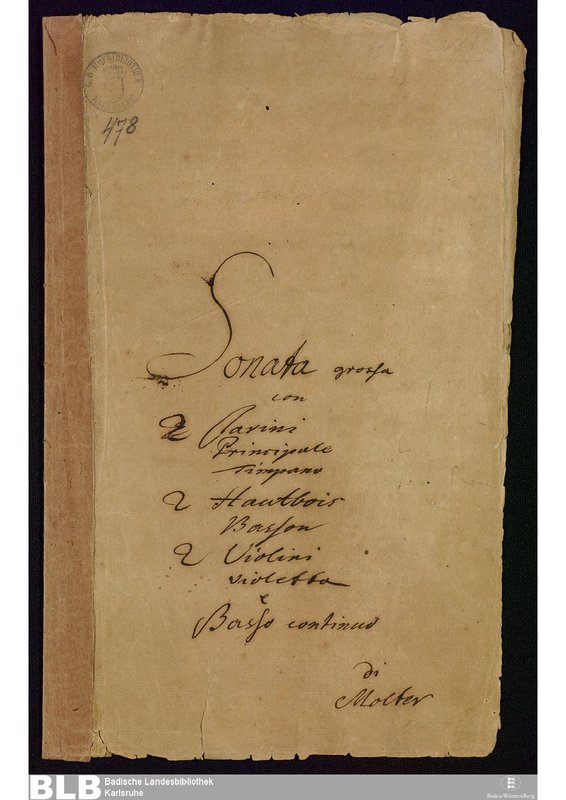 478
Sonata grossa
con
2 Clarini
Principale
Timpano
2 Hautbois
Basson
2 Violini
violetta
e
Basso continuo
di
Molter
BLB Badische Landesbibliothek
Karlsruhe
Baden-Württemberg